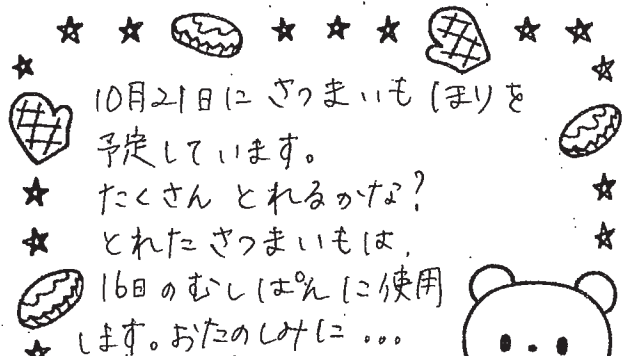 10月21日に さつまいも ほりを
予定しています。
たくさん とれるかな?
とれた さつまいもは、
16日のむしぱんに使用
します。おたのしみに...